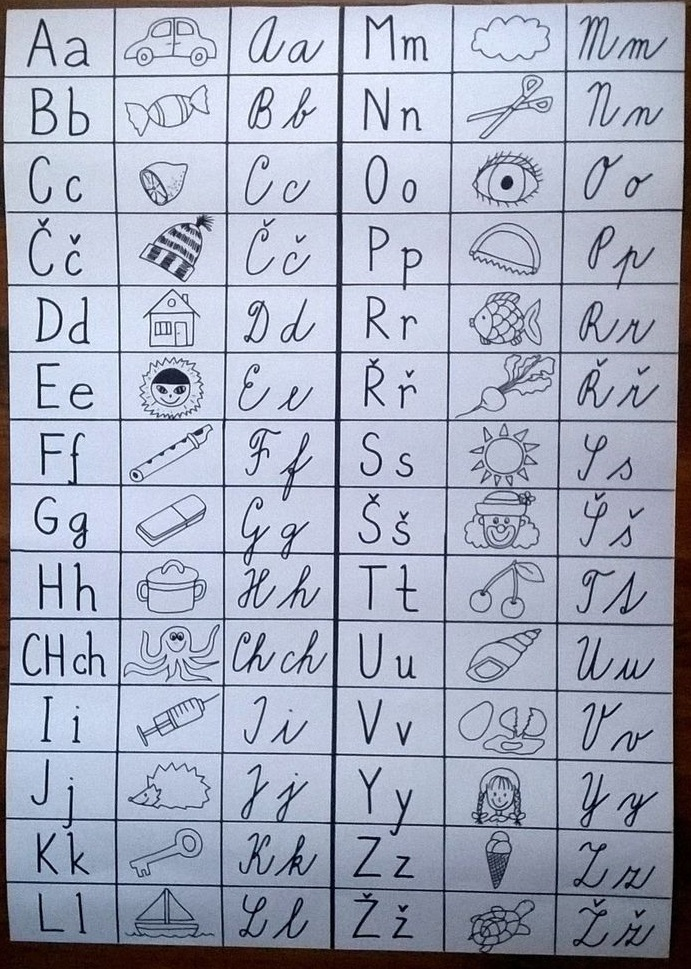 Aa Aa Mm Mm
Bb Bb Nn Nn
Cc Cc Oo Oo
Čč Čč Pp Pp
Dd Dd Rr Rr
Ee Ee Řř Řř
Ff Ff Ss Ss
Gg Gg Šš Šš
Hh Hh Tt Tt
CHch Chch Uu Uu
Ii Ii Vv Vv
Jj Jj Yy Yy
Kk Kk Zz Zz
Ll Ll Žž Žž